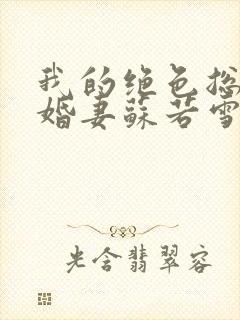 我的绝色总
婚妻苏若雪
光含翡翠容